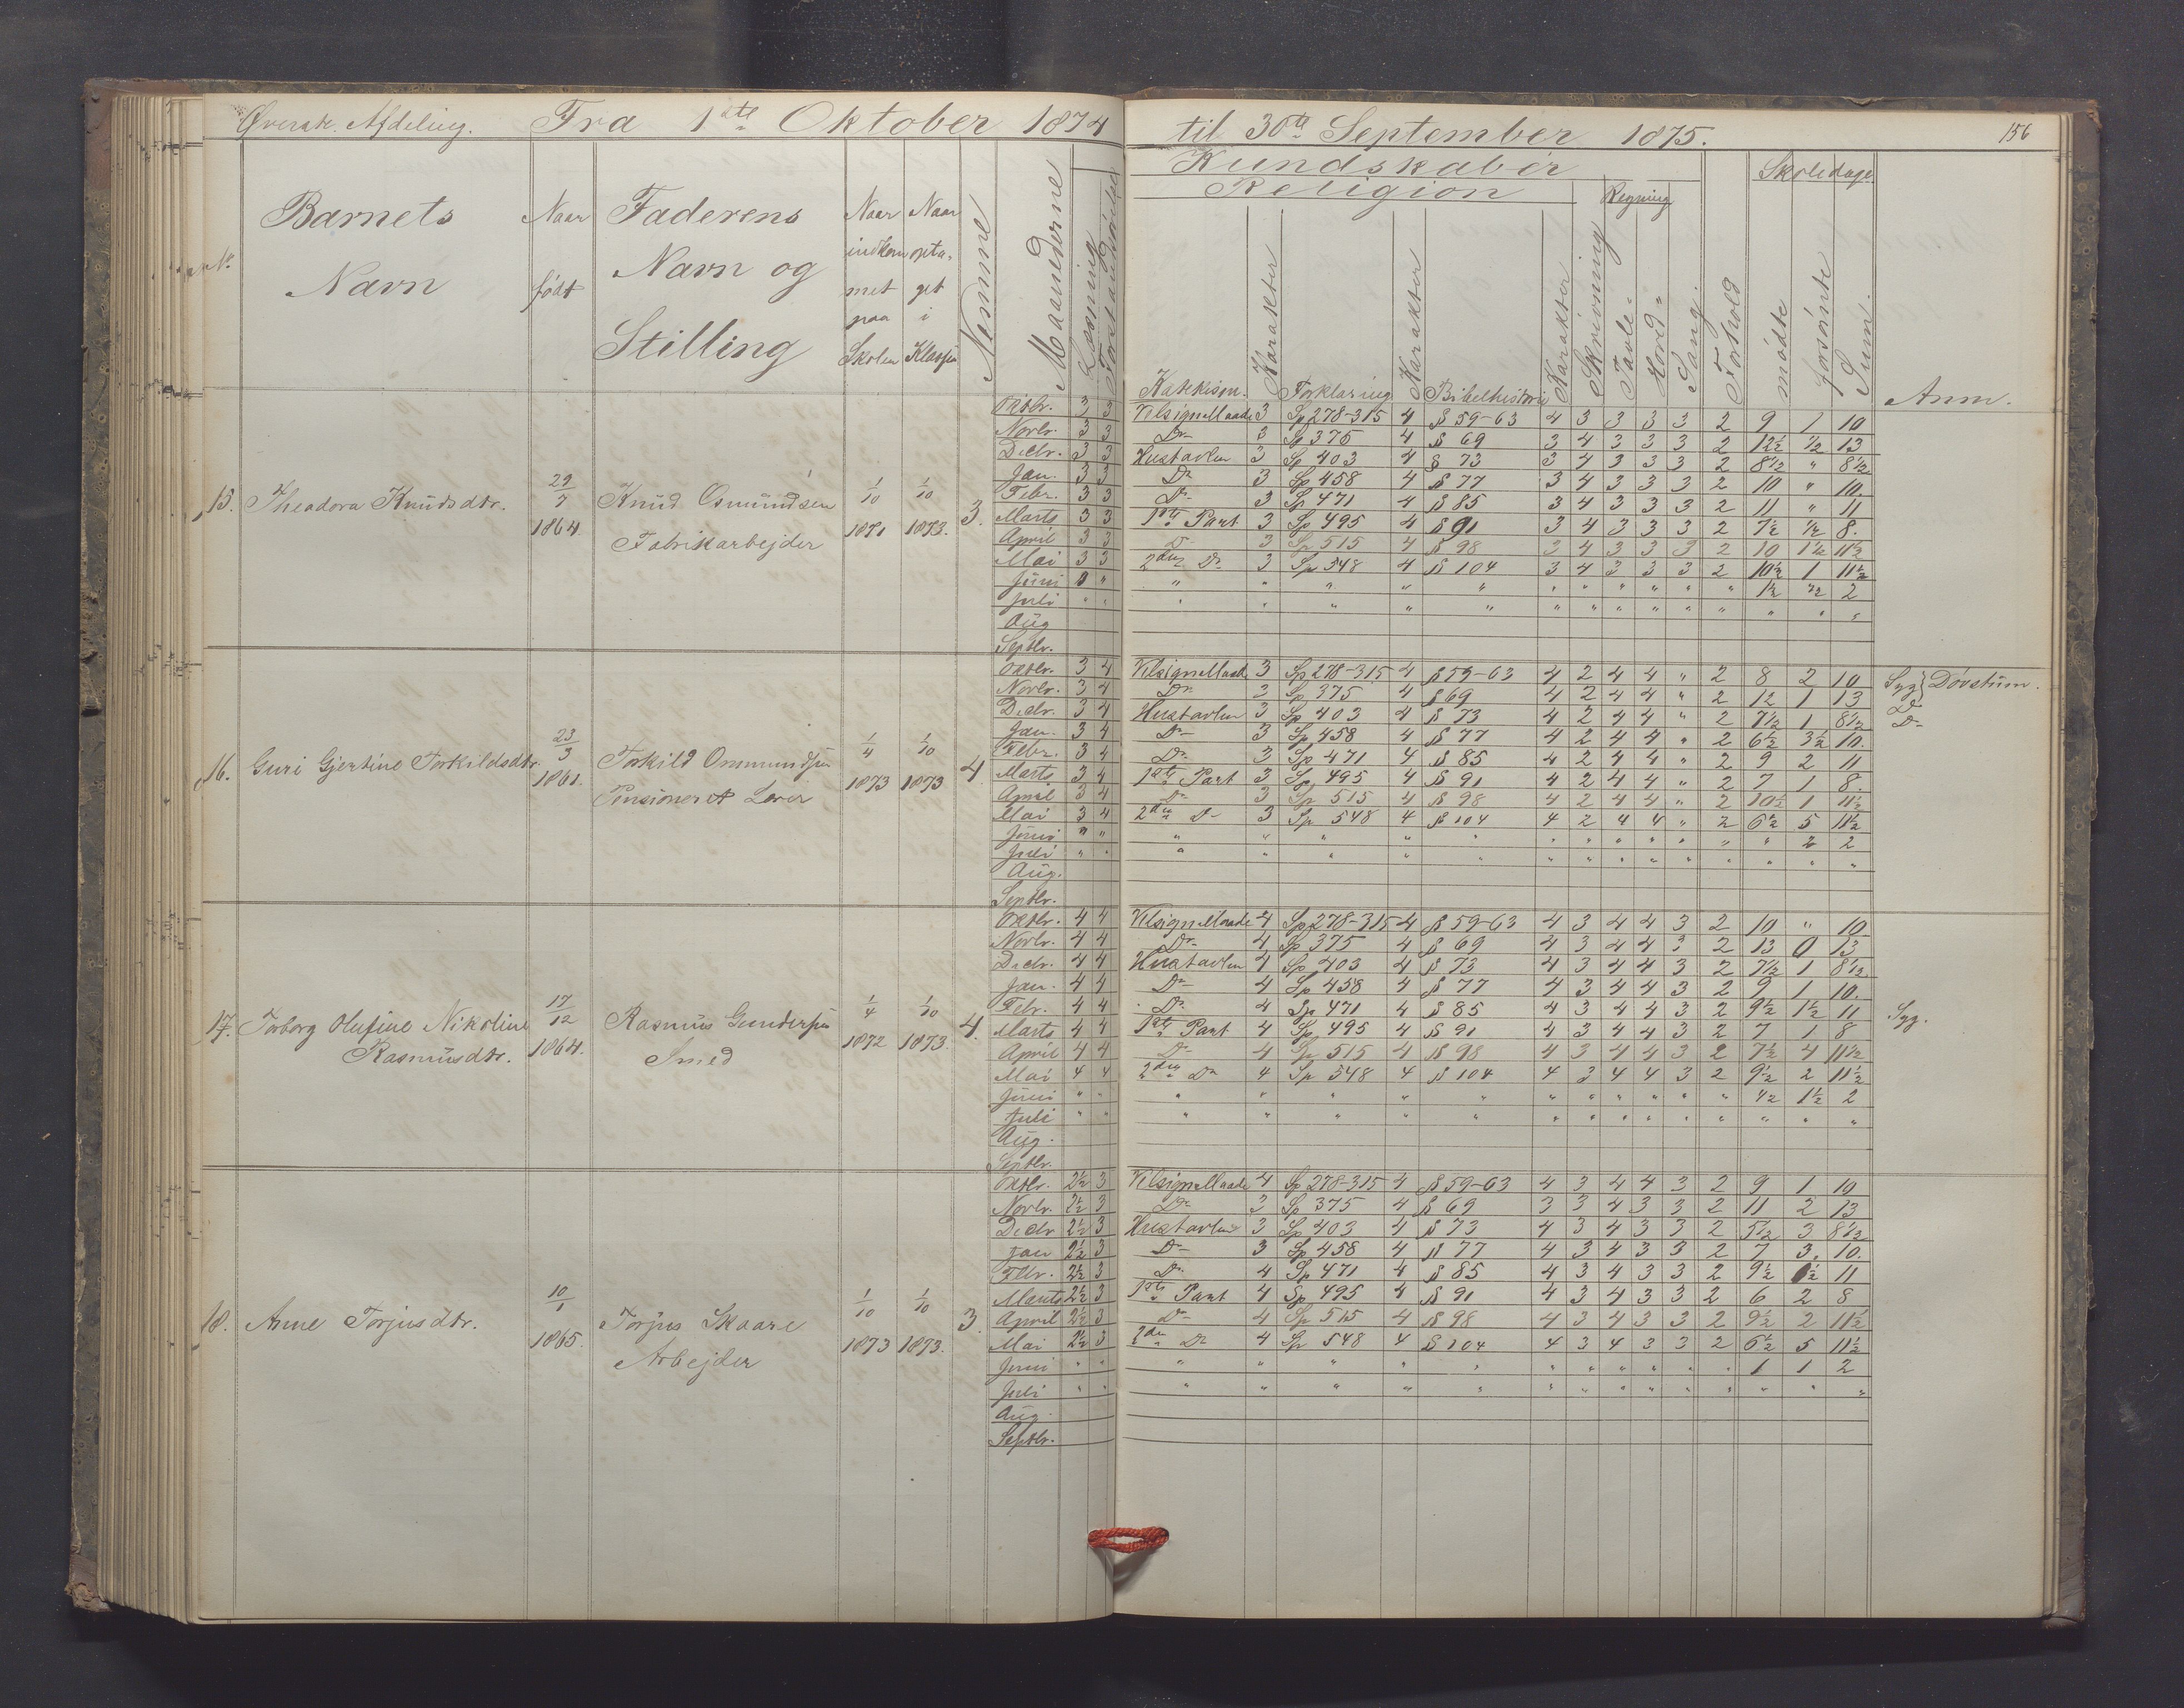 Øverste Afdeling. Fra 1ste Oktober 1874 til 30te September 1875. 156
Kundskaber
Religion Regning Skoledage
Barnets Navn
Naar født
Faderens Navn og Stilling
Naar indkommet paa Skolen
Naar optaget i Klassen
Nemme
Maanederne
Læsning
Katekism. Karakter Forklaring Karakter Bibelhistorie Karakter Skrivning Tavle- Hoved- Sang. Forhold mødte forsømte Sum. Anm.
15. Theodora Knudsdtr. 29/7 1864. Knud Osmundsen Fabrikarbejder 1/10 1871 1/10 1873. 3.
Oktbr. 3 3 Velsign.Maade 3 Sp 278-315 4 § 59-63 4 3 3 3 3 2 9 1 10
Novbr. 3 3 Do 3 Sp 375 4 § 69 3 4 3 3 3 2 12½ ½ 13
Decbr. 3 3 Hustavlen 3 Sp 403 4 § 73 3 4 3 3 3 2 8½ " 8½
Jan. 3 3 Do 3 Sp 458 4 § 77 3 4 3 3 3 2 10 " 10.
Febr. 3 3 Do 3 Sp 471 4 § 85 3 4 3 3 3 2 11 " 11
Marts 3 3 1ste Part 3 Sp 495 4 § 91 3 4 3 3 3 2 7½ ½ 8.
April 3 3 Do 3 Sp 515 4 § 98 3 4 3 3 3 2 10 1½ 11½
Mai 3 3 2den Do 3 Sp 548 4 § 104 3 4 3 3 3 2 10½ 1 11½
Juni " " " " " " " " " " " " " 1½ ½ 2
Juli " " " " " " " " " " " " " " " "
Aug
Septbr.
16. Guri Gjertine Torkildsdtr. 23/3 1861. Torkild Ommundsen Pensioneret Lærer 1/4 1873 1/10 1873 4
Oktbr. 3 4 Velsign.Maade 3 Sp 278-315 4 § 59-63 4 2 4 4 " 2 8 2 10 Syg } Døvstum.
Novbr. 3 4 Do 3 Sp 375 4 § 69 4 2 4 4 " 2 12 1 13 Do
Decbr. 3 4 Hustavlen 3 Sp 403 4 § 73 4 2 4 4 " 2 7½ 1 8½ Do
Jan. 3 4 Do 3 Sp 458 4 § 77 4 2 4 4 " 2 6½ 3½ 10.
Febr. 3 4 Do 3 Sp 471 4 § 85 4 2 4 4 " 2 9 2 11
Marts 3 4 1ste Part 3 Sp 495 4 § 91 4 2 4 4 " 2 7 1 8.
April 3 4 Do 3 Sp 515 4 § 98 4 2 4 4 " 2 10½ 1 11½
Mai 3 4 2den Do 3 Sp 548 4 § 104 4 2 4 4 " 2 6½ 5 11½
Juni " " " " " " " " " " " " " " 2 2
Juli " " " " " " " " " " " " " " " "
Aug.
Septbr.
17. Torborg Olufine Nikoline Rasmusdtr. 17/12 1864. Rasmus Gundersen Smed 1/4 1872 1/10 1873. 4.
Oktbr. 4 4 Velsign.Maade 4 Sp 278-315 4 § 59-63 4 3 4 4 3 2 10 " 10
Novbr. 4 4 Do 4 Sp 375 4 § 69 4 3 4 4 3 2 13 0 13
Decbr. 4 4 Hustavlen 4 Sp 403 4 § 73 4 3 4 4 3 2 7½ 1 8½
Jan. 4 4 Do 4 Sp 458 4 § 77 4 3 4 4 3 2 9 1 10.
Febr. 4 4 Do 4 Sp 471 4 § 85 4 3 4 4 3 2 9½ 1½ 11 Syg.
Marts 4 4 1ste Part 4 Sp 495 4 § 91 4 3 4 4 3 2 7 1 8
April 4 4 Do 4 Sp 515 4 § 98 4 3 4 4 3 2 7½ 4 11½
Mai 4 4 2den Do 4 Sp 548 4 § 104 4 3 4 4 3 2 9½ 2 11½
Juni " " " " " " " " " " " " " ½ 1½ 2
Juli " " " " " " " " " " " " " " " "
Aug.
Septbr.
18. Anne Torjusdtr. 10/1 1865. Torjus Skaare Arbejder 1/10 1873 1/10 1873. 3.
Oktbr. 2½ 3 Velsign.Maade 4 Sp 278-315 4 § 59-63 4 3 4 4 3 2 9 1 10
Novbr. 2½ 3 Do 3 Sp 375 4 § 69 3 3 4 3 3 2 11 2 13
Decbr 2½ 3 Hustavlen 3 Sp 403 4 § 73 4 3 4 3 3 2 5½ 3 8½
Jan 2½ 3 Do 3 Sp 458 4 § 77 4 3 4 3 3 2 7 3. 10.
Febr. 2½ 3 Do 4 Sp 471 4 § 85 4 3 4 3 3 2 9½ 1½ 11
Marts 2½ 3 1ste Part 4 Sp 495 4 § 91 4 3 4 3 3 2 6 2 8
April 2½ 3 Do 4 Sp 515 4 § 98 4 3 4 3 3 2 9½ 2 11½
Mai 2½ 3 2den Do 4 Sp 548 4 § 104 4 3 4 3 3 2 6½ 5 11½
Juni " " " " " " " " " " " " " 1 1 2
Juli " " " " " " " " " " " " " " " "
Aug.
Septbr.